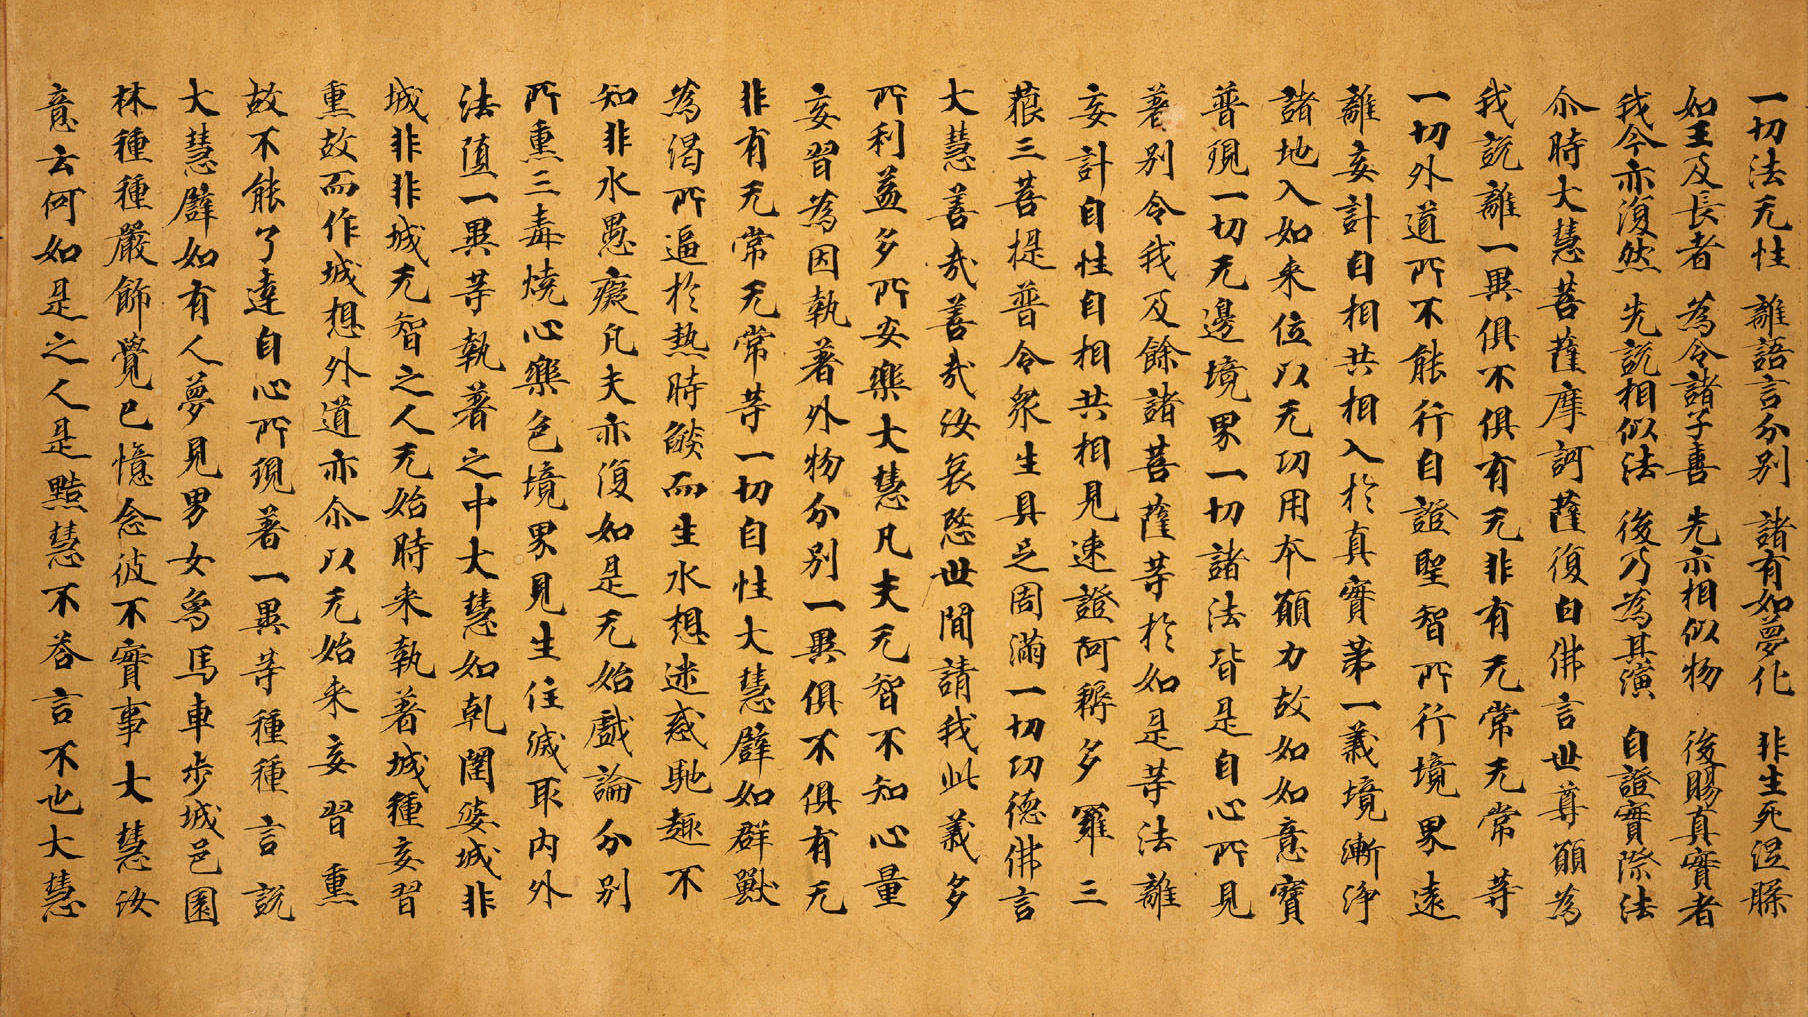 一切法无性 離語言分别 諸有如夢化 非生死涅槃
如王及長者 為令諸子喜 先示相似物 後賜真實者
我今亦復然 先說相似法 後乃為其演 自證實際法
尒時大慧菩薩摩訶薩復白佛言世尊願為
我說離一異俱不俱有无非有无常无常等
一切外道所不能行自證聖智所行境界遠
離妄計自相共相入於真實苐一義境漸淨
諸地入如来位以无功用本願力故如如意寶
普現一切无邊境界一切諸法皆是自心所見
著别令我及餘諸菩薩等於如是等法離
妄計自性自相共相見速證阿耨多羅三
藐三菩提普令衆生具足圓滿一切功德佛言
大慧善哉善哉汝哀愍世間請我此義多
所利益多所安樂大慧凡夫无智不知心量
妄習為因執著外物分别一異俱不俱有无
非有无常无常等一切自性大慧譬如群獸
為渴所逼於熱時燄而生水想迷惑馳趣不
知非水愚癡凡夫亦復如是无始戲論分别
所熏三毒燒心樂色境界見生住滅取内外
法墮一異等執著之中大慧如乹闥婆城非
城非非城无智之人无始時来執著城種妄習
熏故而作城想外道亦尒以无始来妄習熏
故不能了達自心所現著一異等種種言說
大慧譬如有人夢見男女象馬車步城邑園
林種種嚴飾覺已憶念彼不實事大慧汝
意云何如是之人是黠慧不荅言不也大慧